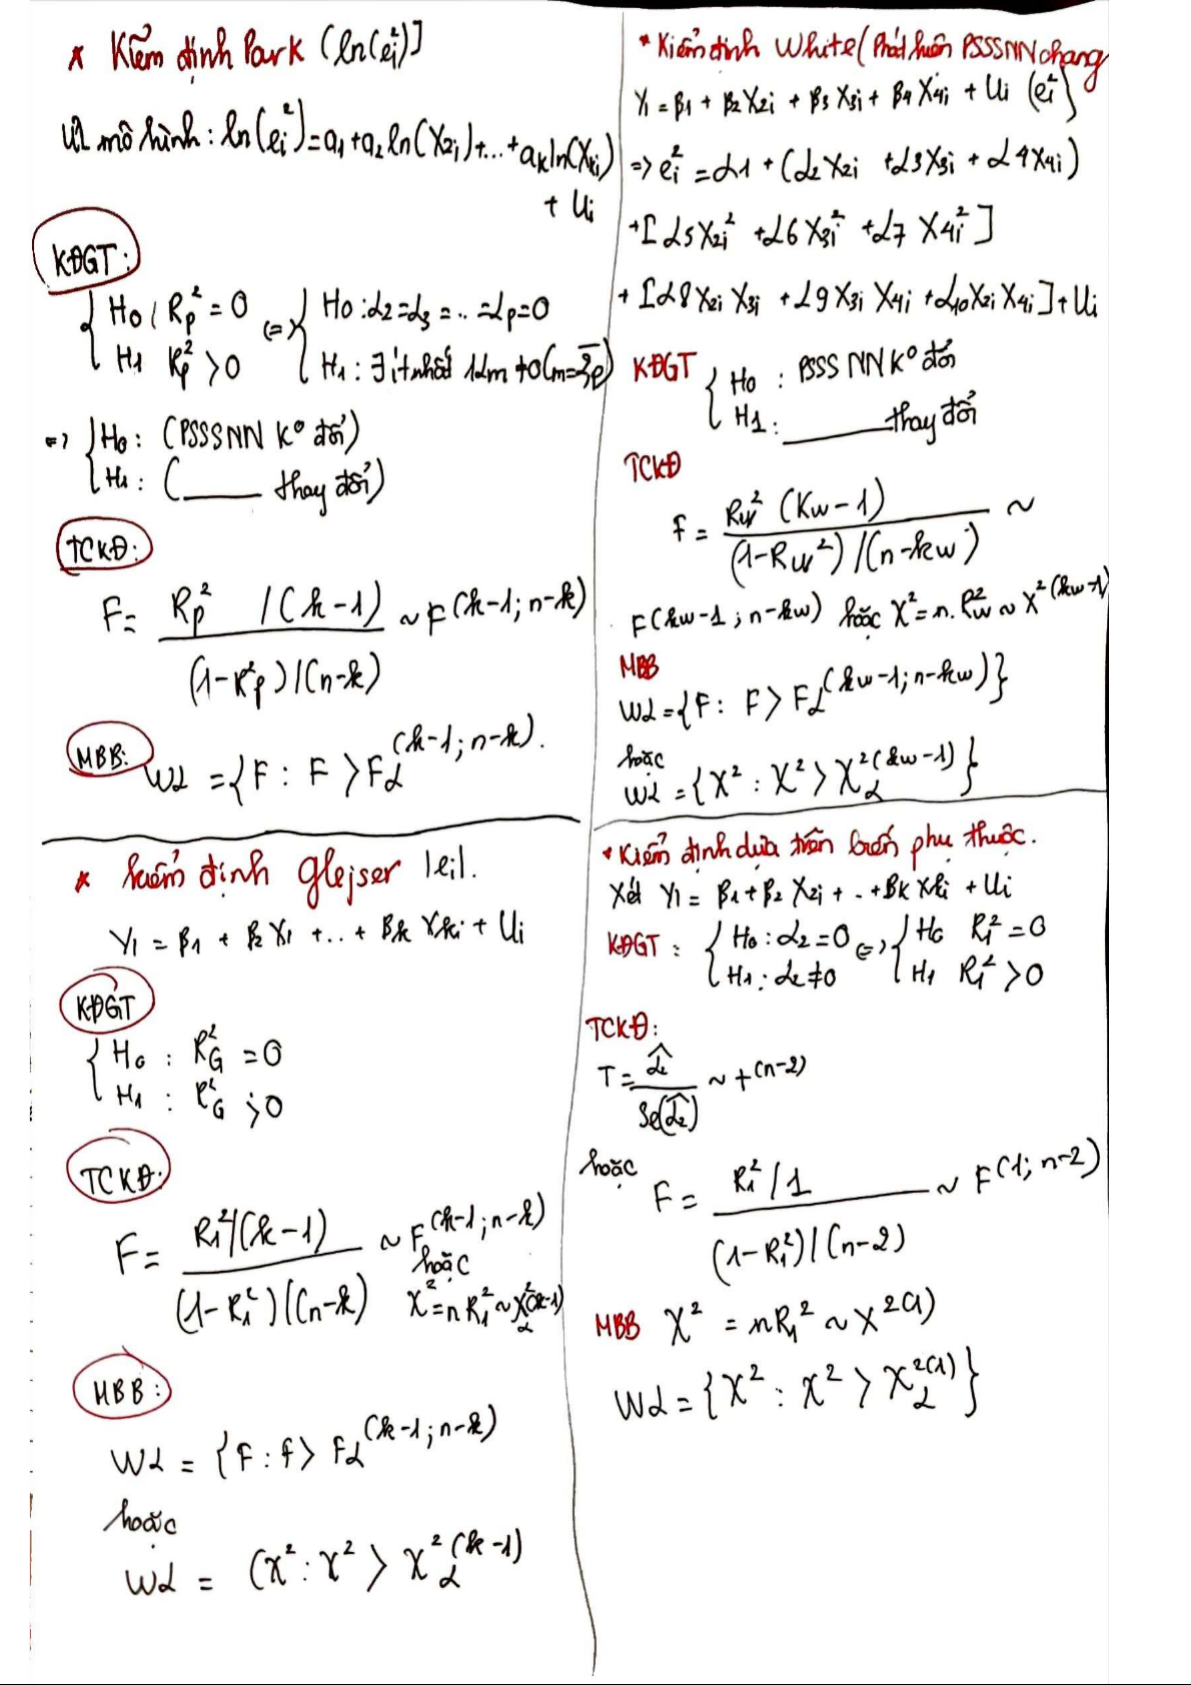 * Kiểm định Park (ln(ei²)]
ƯL mô hình: ln(ei²)=a1+a2ln(X2i)+...+akln(Xki)
+ Ui
KĐGT:
{ H0: Rp² = 0 (=) { H0: α2=α3=..=αp=0
H1 Rp² > 0 H1: ∃ ít nhất 1αm ≠0(m=3,p)
=> { H0: (PSSSNN K° đổi)
H1: (____ thay đổi)
TCKĐ:
F= Rp² /(k-1) ~ F(k-1; n-k)
(1-Rp²)/(n-k)
MBB: Wα = {F: F > Fα(k-1; n-k).
* Kiểm định Glejser |ei|.
Yi = β1 + β2 Xi +..+ βk Xki + Ui
KĐGT
{ H0 : RG² = 0
H1 : RG² > 0
TCKĐ:
F= Ri²/(k-1) ~ F(k-1; n-k)
hoặc
(1-Ri²)/(n-k) X²=nR1²~Xα²(k-1)
MBB:
Wα = {F: f > Fα(k-1; n-k)
hoặc
Wα = (X²: X² > Xα²(k-1)
* Kiểm định White (Phát hiện PSSSNN chang
Yi = β1 + β2 X2i + β3 X3i + β4 X4i + Ui (ei²}
=> ei² = α1 + (α2 X2i + α3 X3i + α4 X4i)
+[ α5 X2i² + α6 X3i² + α7 X4i² ]
+ [α8 X2i X3i + α9 X3i X4i + α10 X2i X4i] + Ui
KĐGT { H0 : PSSS NN K° đổi
H1: ____ thay đổi
TCKĐ
f = Rw² (Kw-1) ~
(1-Rw²)/(n-kw)
F(kw-1; n-kw) hoặc X²= n.Rw² ~ X²(kw-1)
MBB
Wα={F: F > Fα(kw-1; n-kw)}
hoặc
Wα = {X²: X² > Xα²(kw-1)}
* Kiểm định dựa trên biến phụ thuộc.
Xét Yi = β1 + β2 X2i + .. + βk Xki + Ui
KĐGT : { H0: α2=0 (=) { H0 R1² = 0
H1: α2≠0 H1 R1² > 0
TCKĐ:
T= α̂2 ~ t(n-2)
Se(α̂2)
hoặc F = R1² / 1 ~ F(1; n-2)
(1-R1²)/(n-2)
MBB X² = nR1² ~ X²(1)
Wα = {X²: X² > Xα²(1)}